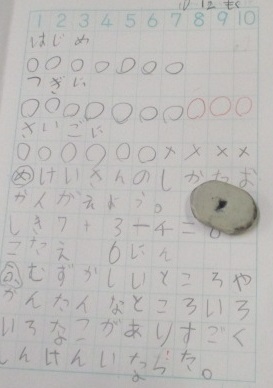 1 2 3 4 5 6 7 8 9 10
はじめ
○○○○○○○
つぎに
○○○○○○○○○○
さいごに
○○○○○○××××
めけいさんのしかたお
かんがえよう。
しき7+3-4=6
こたえ 6にん
ふむずかしいところや
かんたんなところいろ
いろなこがありすごく
しんけんいなった。